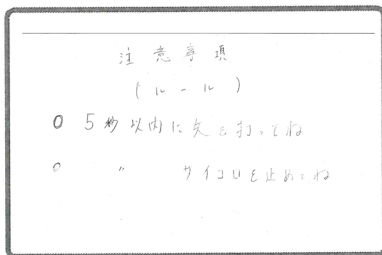 注意事項
(ルール)
○ 5秒以内に矢を打ってね
○ 〃 サイコロを止めてね